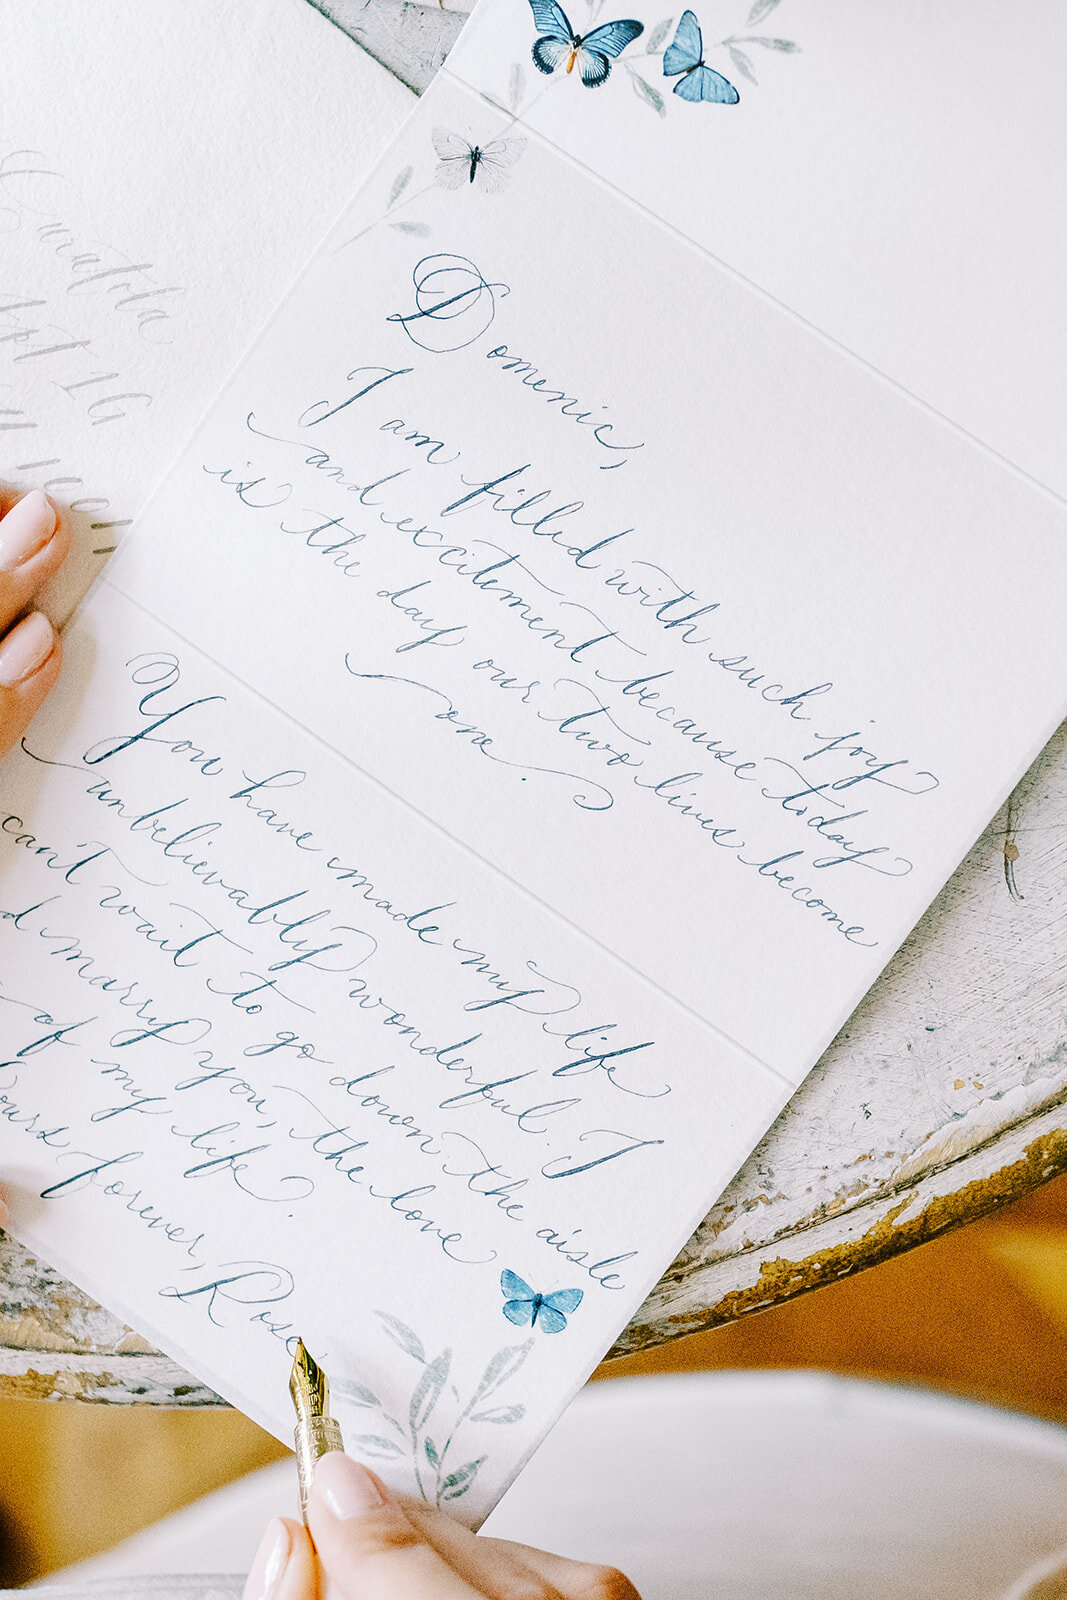 Curatola
Apt 1G
Domenic,
I am filled with such joy
and excitement because today
is the day our two lives become
one.
You have made my life
unbelievably wonderful. I
can't wait to go down the aisle
marry you, the love
of my life.
Yours forever,
Rose